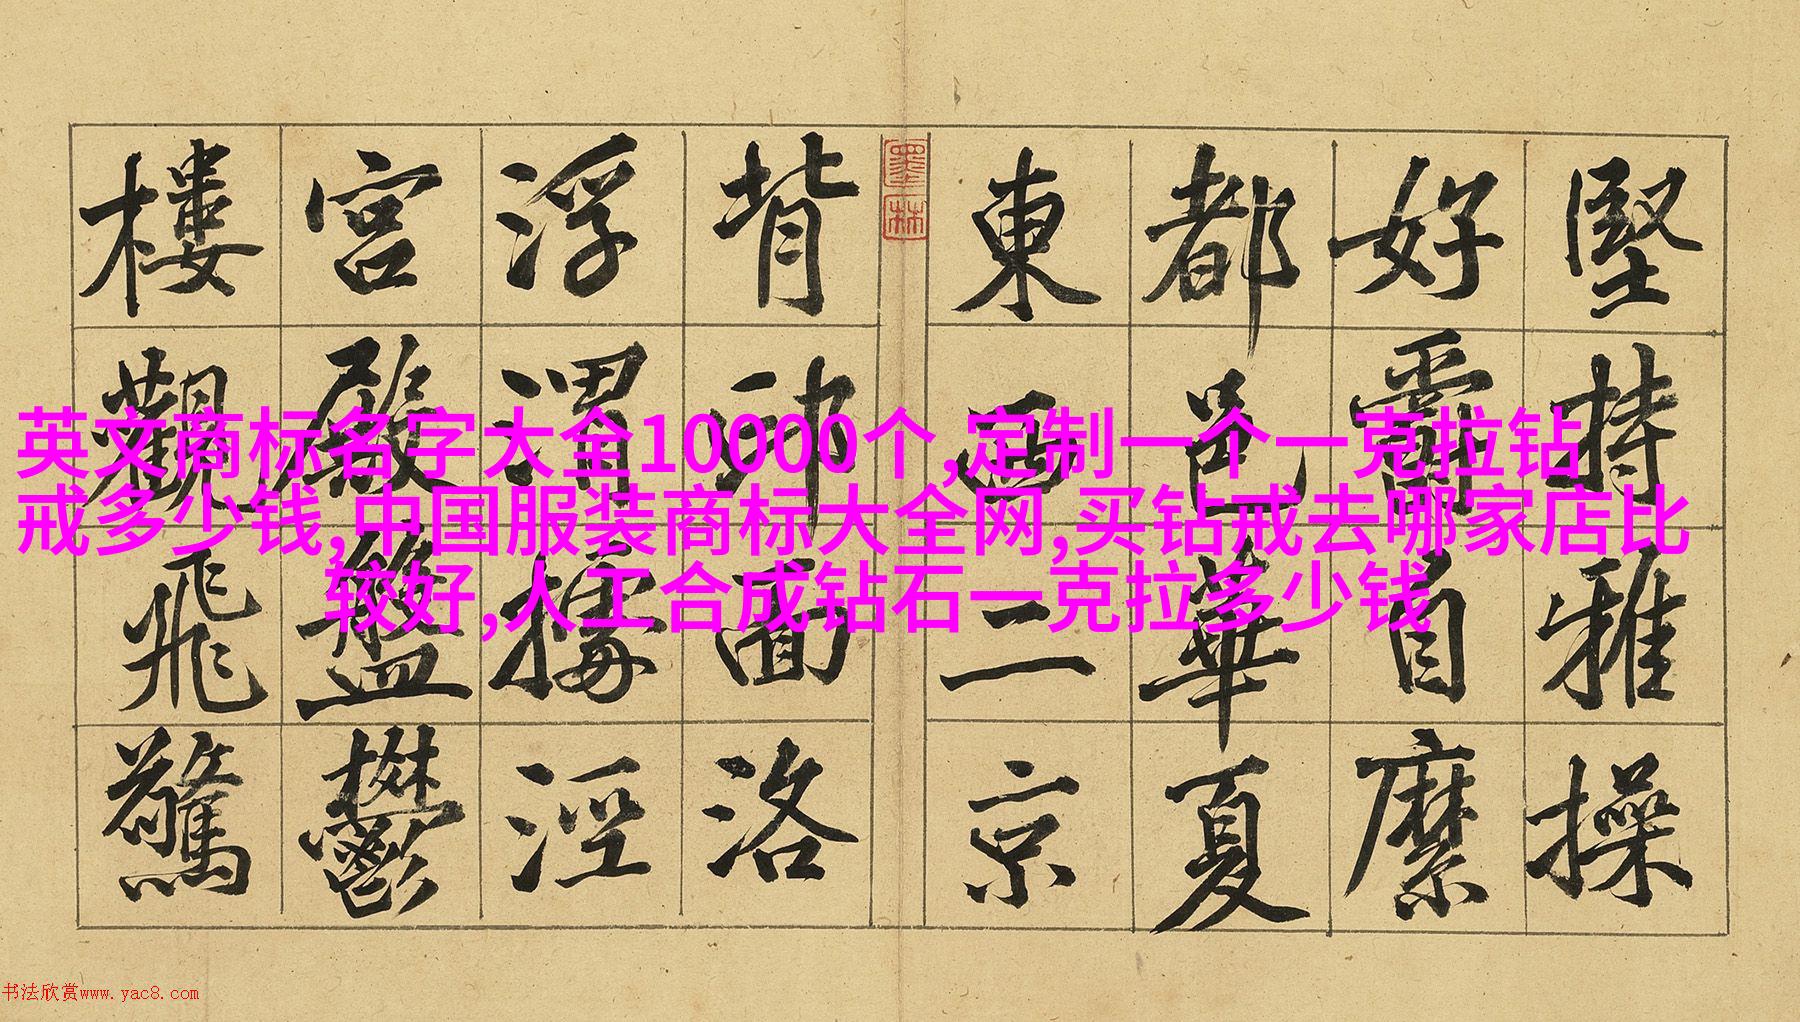 堅持雅操
好爵自縻
都邑華夏
東西二京
墨林
背邙面洛
浮渭據涇
宮殿盤鬱
樓觀飛驚
英文商标名字大全10000个,定制一个一克拉钻
戒多少钱,中国服装商标大全网,买钻戒去哪家店比
较好,人工合成钻石一克拉多少钱
书法欣赏www.yac8.com